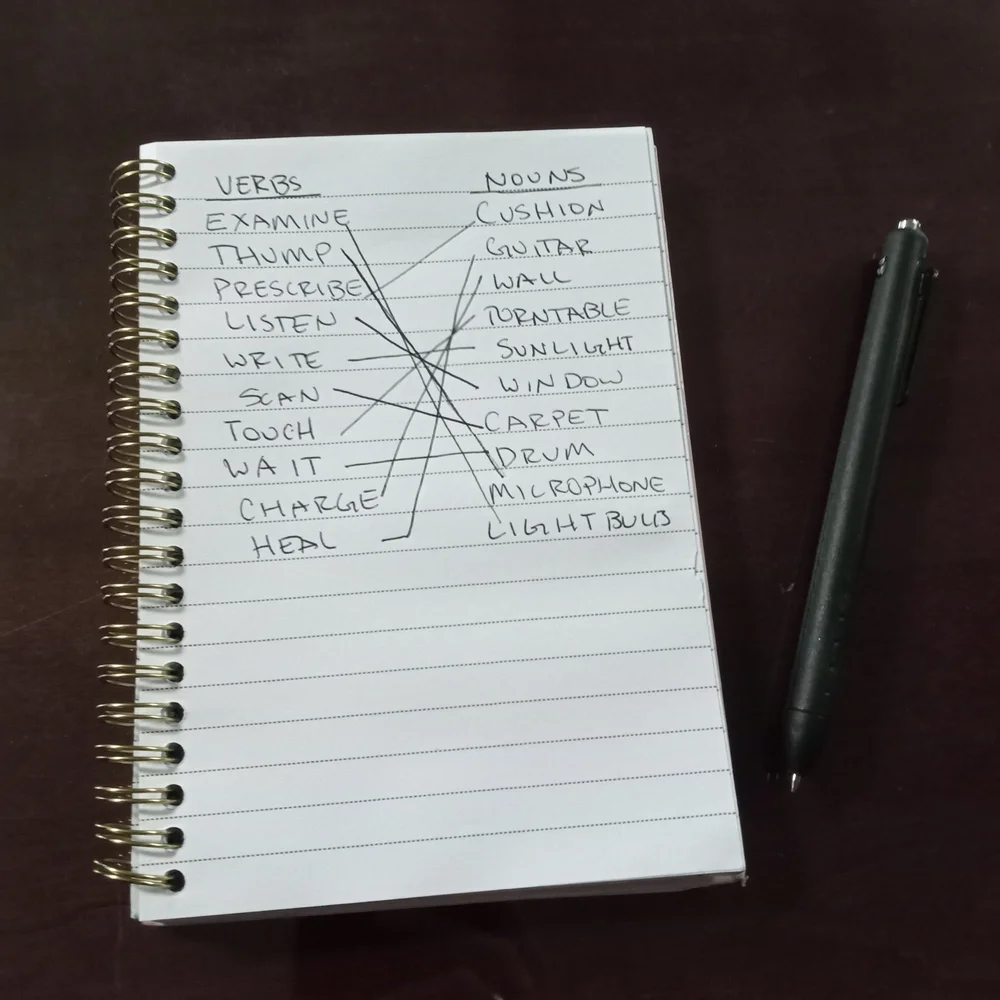 VERBS NOUNS
EXAMINE CUSHION
THUMP GUITAR
PRESCRIBE WALL
LISTEN TORNTABLE
WRITE SUNLIGHT
SCAN WINDOW
TOUCH CARPET
WAIT DRUM
CHARGE MICROPHONE
HEAL LIGHTBULB